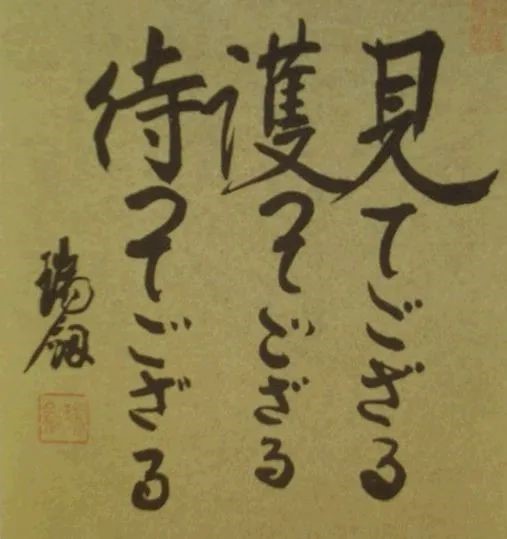 見てござる
護ってござる
待ってござる
瑞剱